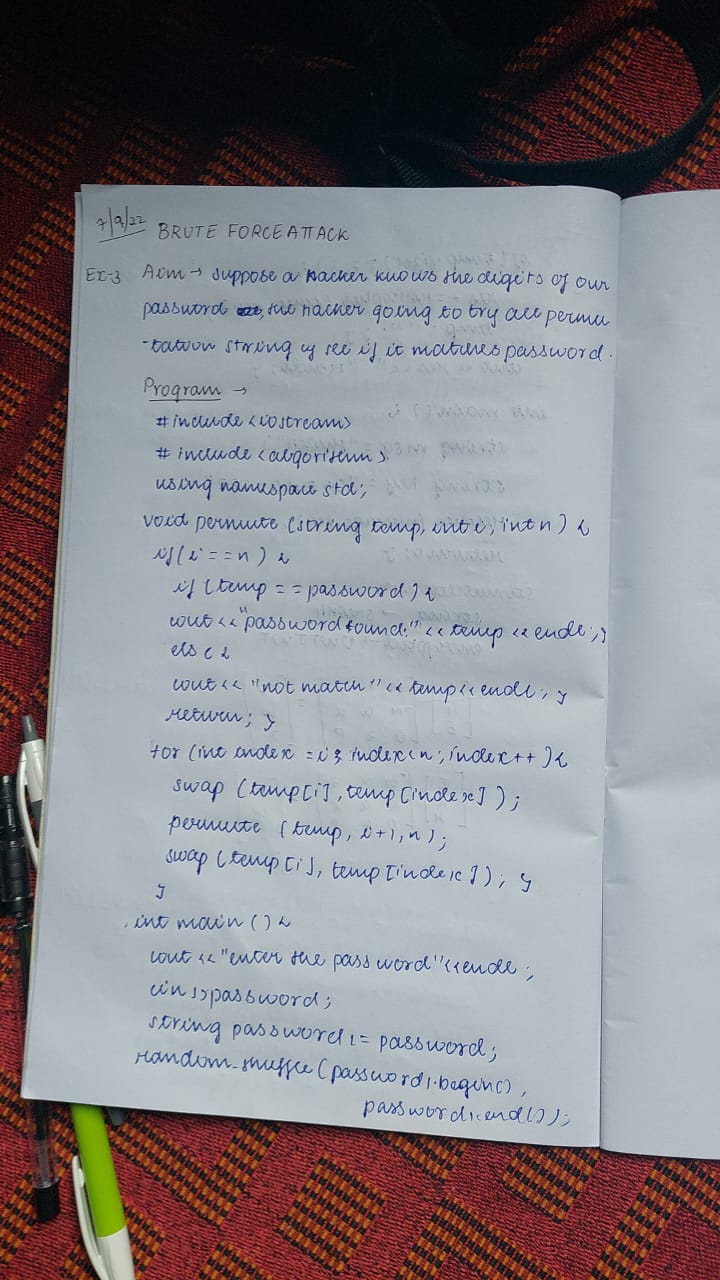 7/9/22 BRUTE FORCE ATTACK
Ex-3 Aim → Suppose a hacker knows the digits of our
password, the hacker going to try all permu
-tation string & see if it matches password.
Program →
#include <iostream>
#include <algorithm>
using namespace std;
void permute (string temp, int i, int n) {
if (i == n) {
if (temp == password) {
cout << "password found:" << temp << endl; }
else {
cout << "not match" << temp << endl; }
return; }
for (int index = i; index < n; index++) {
swap (temp[i], temp[index]);
permute (temp, i+1, n);
swap (temp[i], temp[index]); }
}
int main () {
cout << "enter the password" << endl;
cin >> password;
string password1 = password;
random_shuffle (password1.begin(),
password1.end());